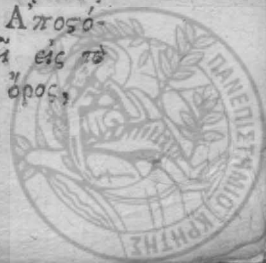 Ἀποσό-
ῖ εἰς τὸ
ὄρος,
ΠΑΝΕΠΙΣΤΗΜΙΟ ΚΡΗΤΗΣ